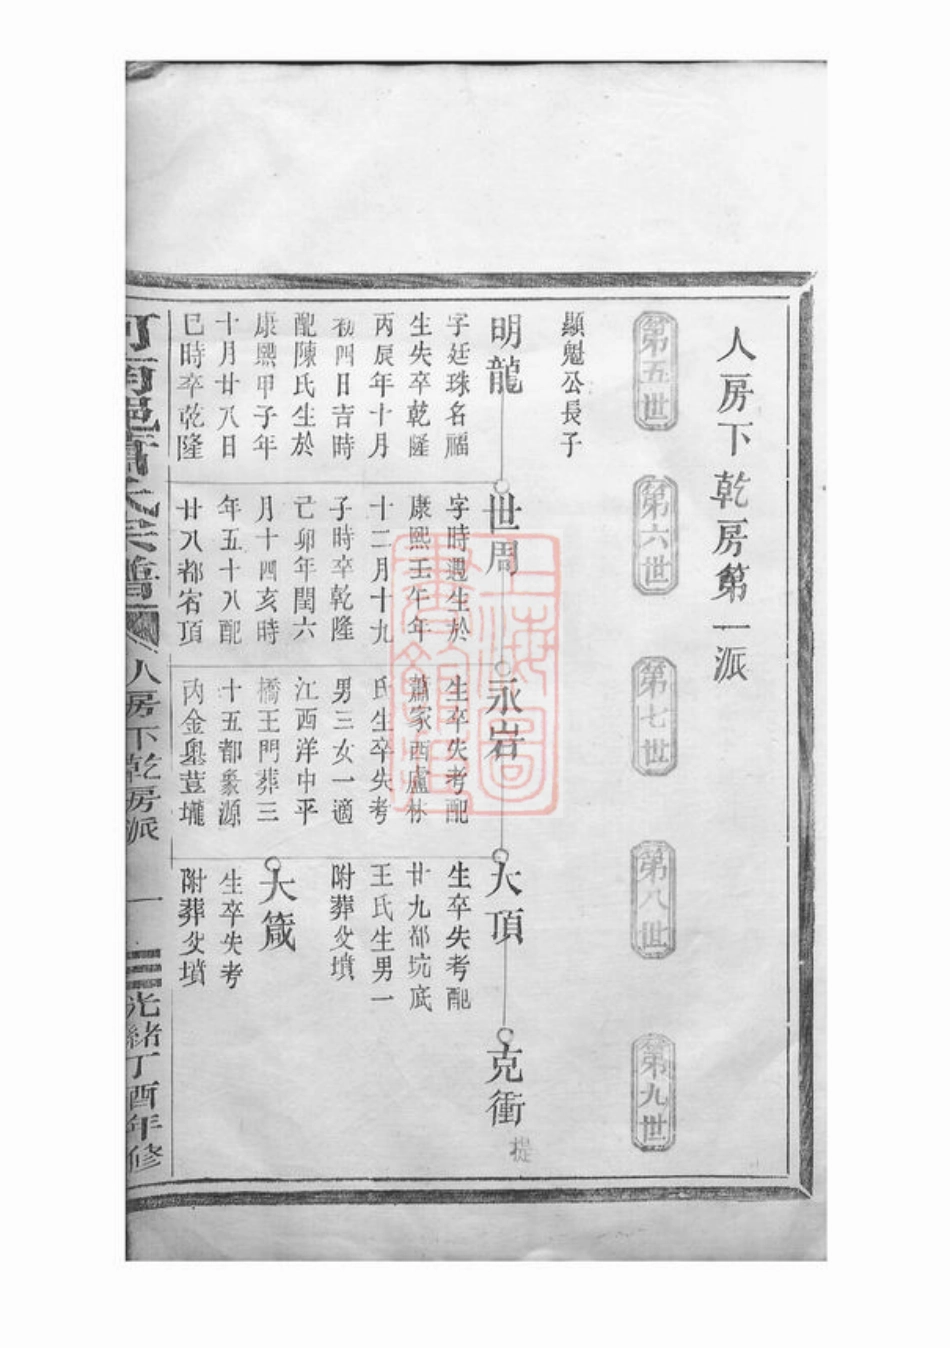 人房下乾房第一派
第五世
第六世
第七世
第八世
第九世
顯魁公長子
明龍
字廷珠名福
生失卒乾隆
丙辰年十月
初四日吉時
配陳氏生於
康熙甲子年
十月廿八日
巳時卒乾隆
世周
字時遇生於
康熙壬午年
十二月十九
子時卒乾隆
己卯年閏六
月十四亥時
年五十八配
廿八都宕頂
永岩
生卒失考配
蕭家西廬林
氏生卒失考
男三女一適
江西洋中平
橋王門葬三
十五都象源
内金㙇荳壠
大頂
生卒失考配
廿九都坑底
王氏生男一
附葬父墳
大箴
生卒失考
附葬父墳
克衝
提
氏宗譜
人房下乾房派
一
光緒丁酉年修
上海圖書館藏